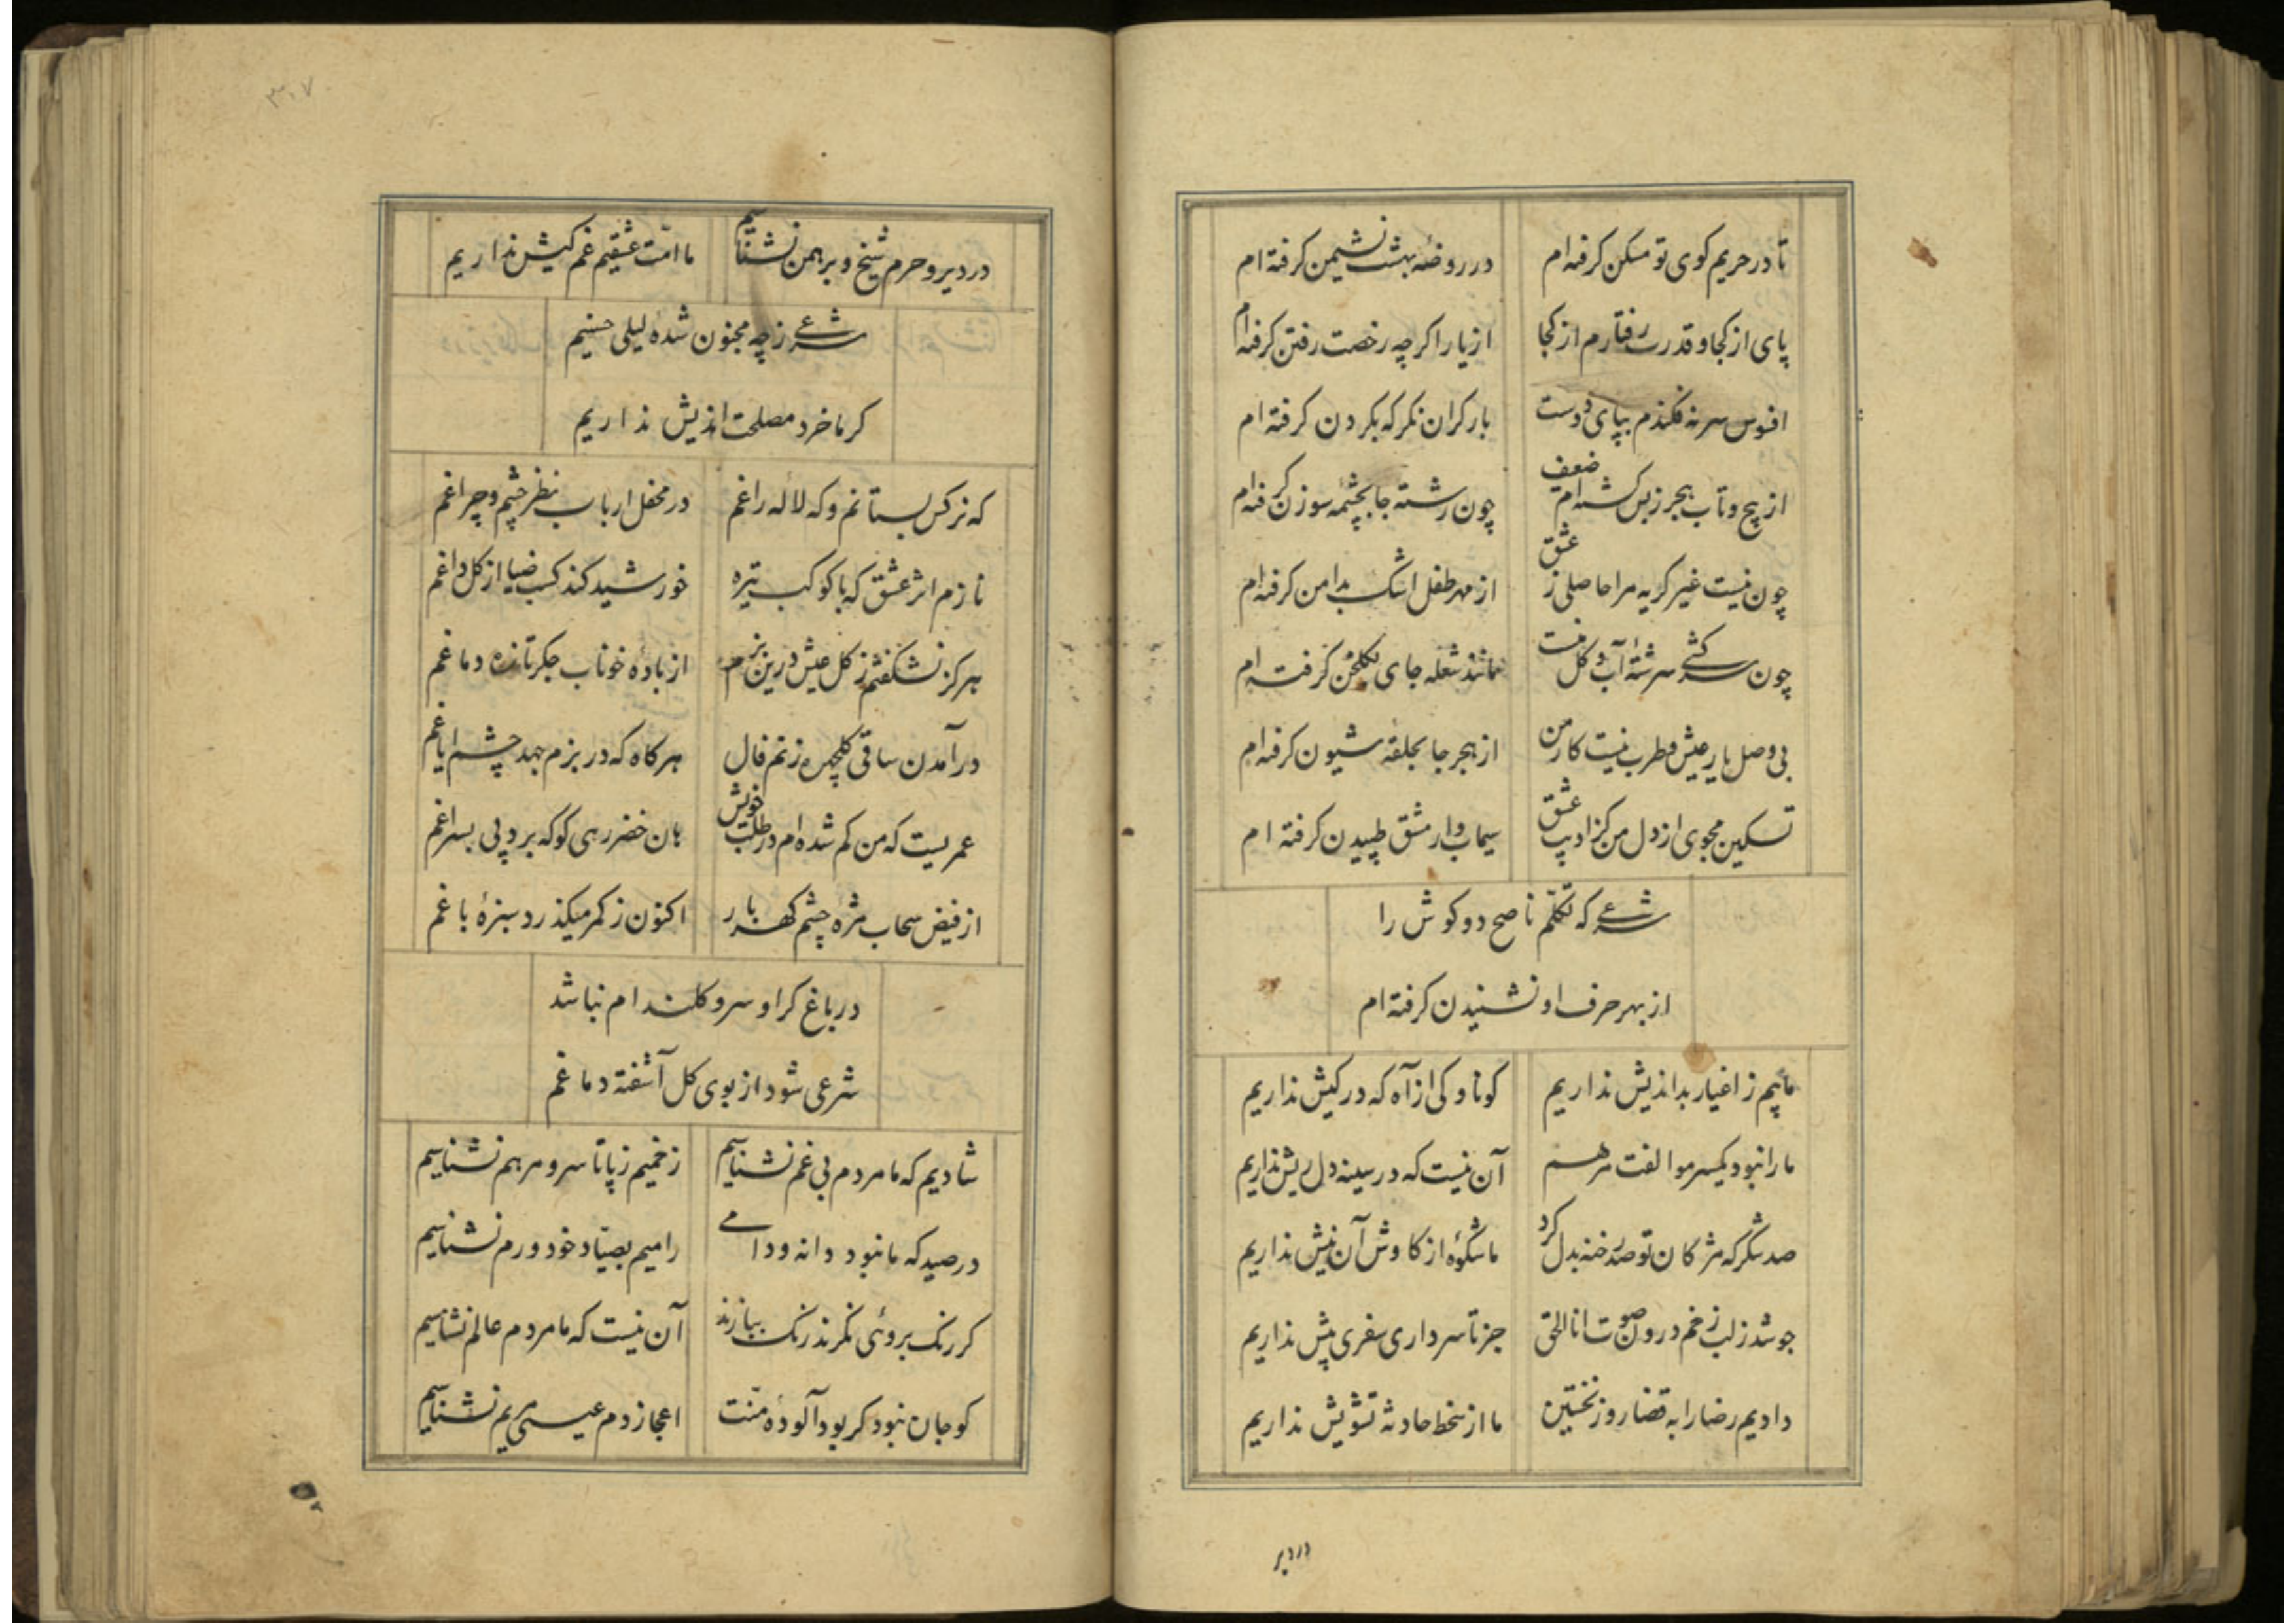 تا در حریم کوی تو مسکن کرفته ام در روضهٔ بهشت نشیمن کرفته ام
پای از کجا و قدرت رفتارم از کجا از یار اکرچه رخصت رفتن کرفته ام
افسوس سر نه فکندم بپای دوست بار کران نکر که بکردن کرفته ام
از پیچ و تاب هجر ز بس کشته ام ضعیف چون رشته جا بچشمه سوزن کرفته ام
چون نیست غیر کریه مرا حاصلی ز عشق از مهر طفل اشک بدامن کرفته ام
چون سرکشی سرشتهٔ آب و کل منست مانند شعله جای بکلخن کرفته ام
بی وصل یار عیش و طرب نیست کار من از هجر جا بحلقهٔ شیون کرفته ام
تسکین مجوی از دل من کز ادیب عشق سیماب وار مشق طپیدن کرفته ام
شرعی که تکلّم ناصح دو کوش را
از بهر حرف او نشنیدن کرفته ام
ماییم ز اغیار بداندیش نداریم کو ناوکی از آه که در کیش نداریم
ما را نبود یکسر مو الفت مرهم آن نیست که در سینه دل ریش نداریم
صد شکر که مژکان تو صد رخنه بدل کرد ما شکوهٔ از کاوش آن نیش نداریم
جوشد ز لب زخم درون صوت انا الحق جز تا سر داری سفری پیش نداریم
دادیم رضا را به قضا روز نخستین ما از سخط حادثه تشویش نداریم
در دیر
۳۰۷
در دیر و حرم شیخ و برهمن نشناسیم ما امّت عشقیم غم کیش نداریم
شرعی ز چه مجنون شدهٔ لیلی حسنیم
کر ما خرد مصلحت اندیش نداریم
که نرکس بستانم و که لاله راغم در محفل ارباب نظر چشم و چراغم
نازم اثر عشق که با کوکب تیره خورشید کند کسب ضیا از کل داغم
هرکز نشکفتم ز کل عیش درین بزم از بادهٔ خوناب جکر تازه دماغم
در آمدن ساقی کلچهره زنم فال هر کاه که در بزم جهد چشم ایاغم
عمریست که من کم شده ام در طلب خویش هان خضر رهی کو که برد پی بسراغم
از فیض سحاب مژه چشم کهربار اکنون ز کمر میکذرد سبزهٔ باغم
در باغ کر او سرو کلندام نباشد
شرعی شود از بوی کل آشفته دماغم
شادیم که ما مردم بی غم نشناسیم زخمیم ز پا تا سر و مرهم نشناسیم
در صید که ما نبود دانه و دامی رامیم بصیّاد خود و رم نشناسیم
کر رنک بروئی نکرند رنک ببازند آن نیست که ما مردم عالم نشناسیم
کو جان نبود کر بود آلودهٔ منّت اعجاز دم عیسی مریم نشناسیم